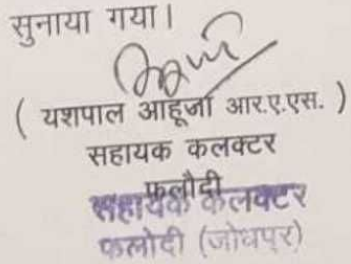 सुनाया गया।
( यशपाल आहूजा आर.ए.एस. )
सहायक कलक्टर
फलौदी
सहायक कलक्टर
फलोदी (जोधपुर)